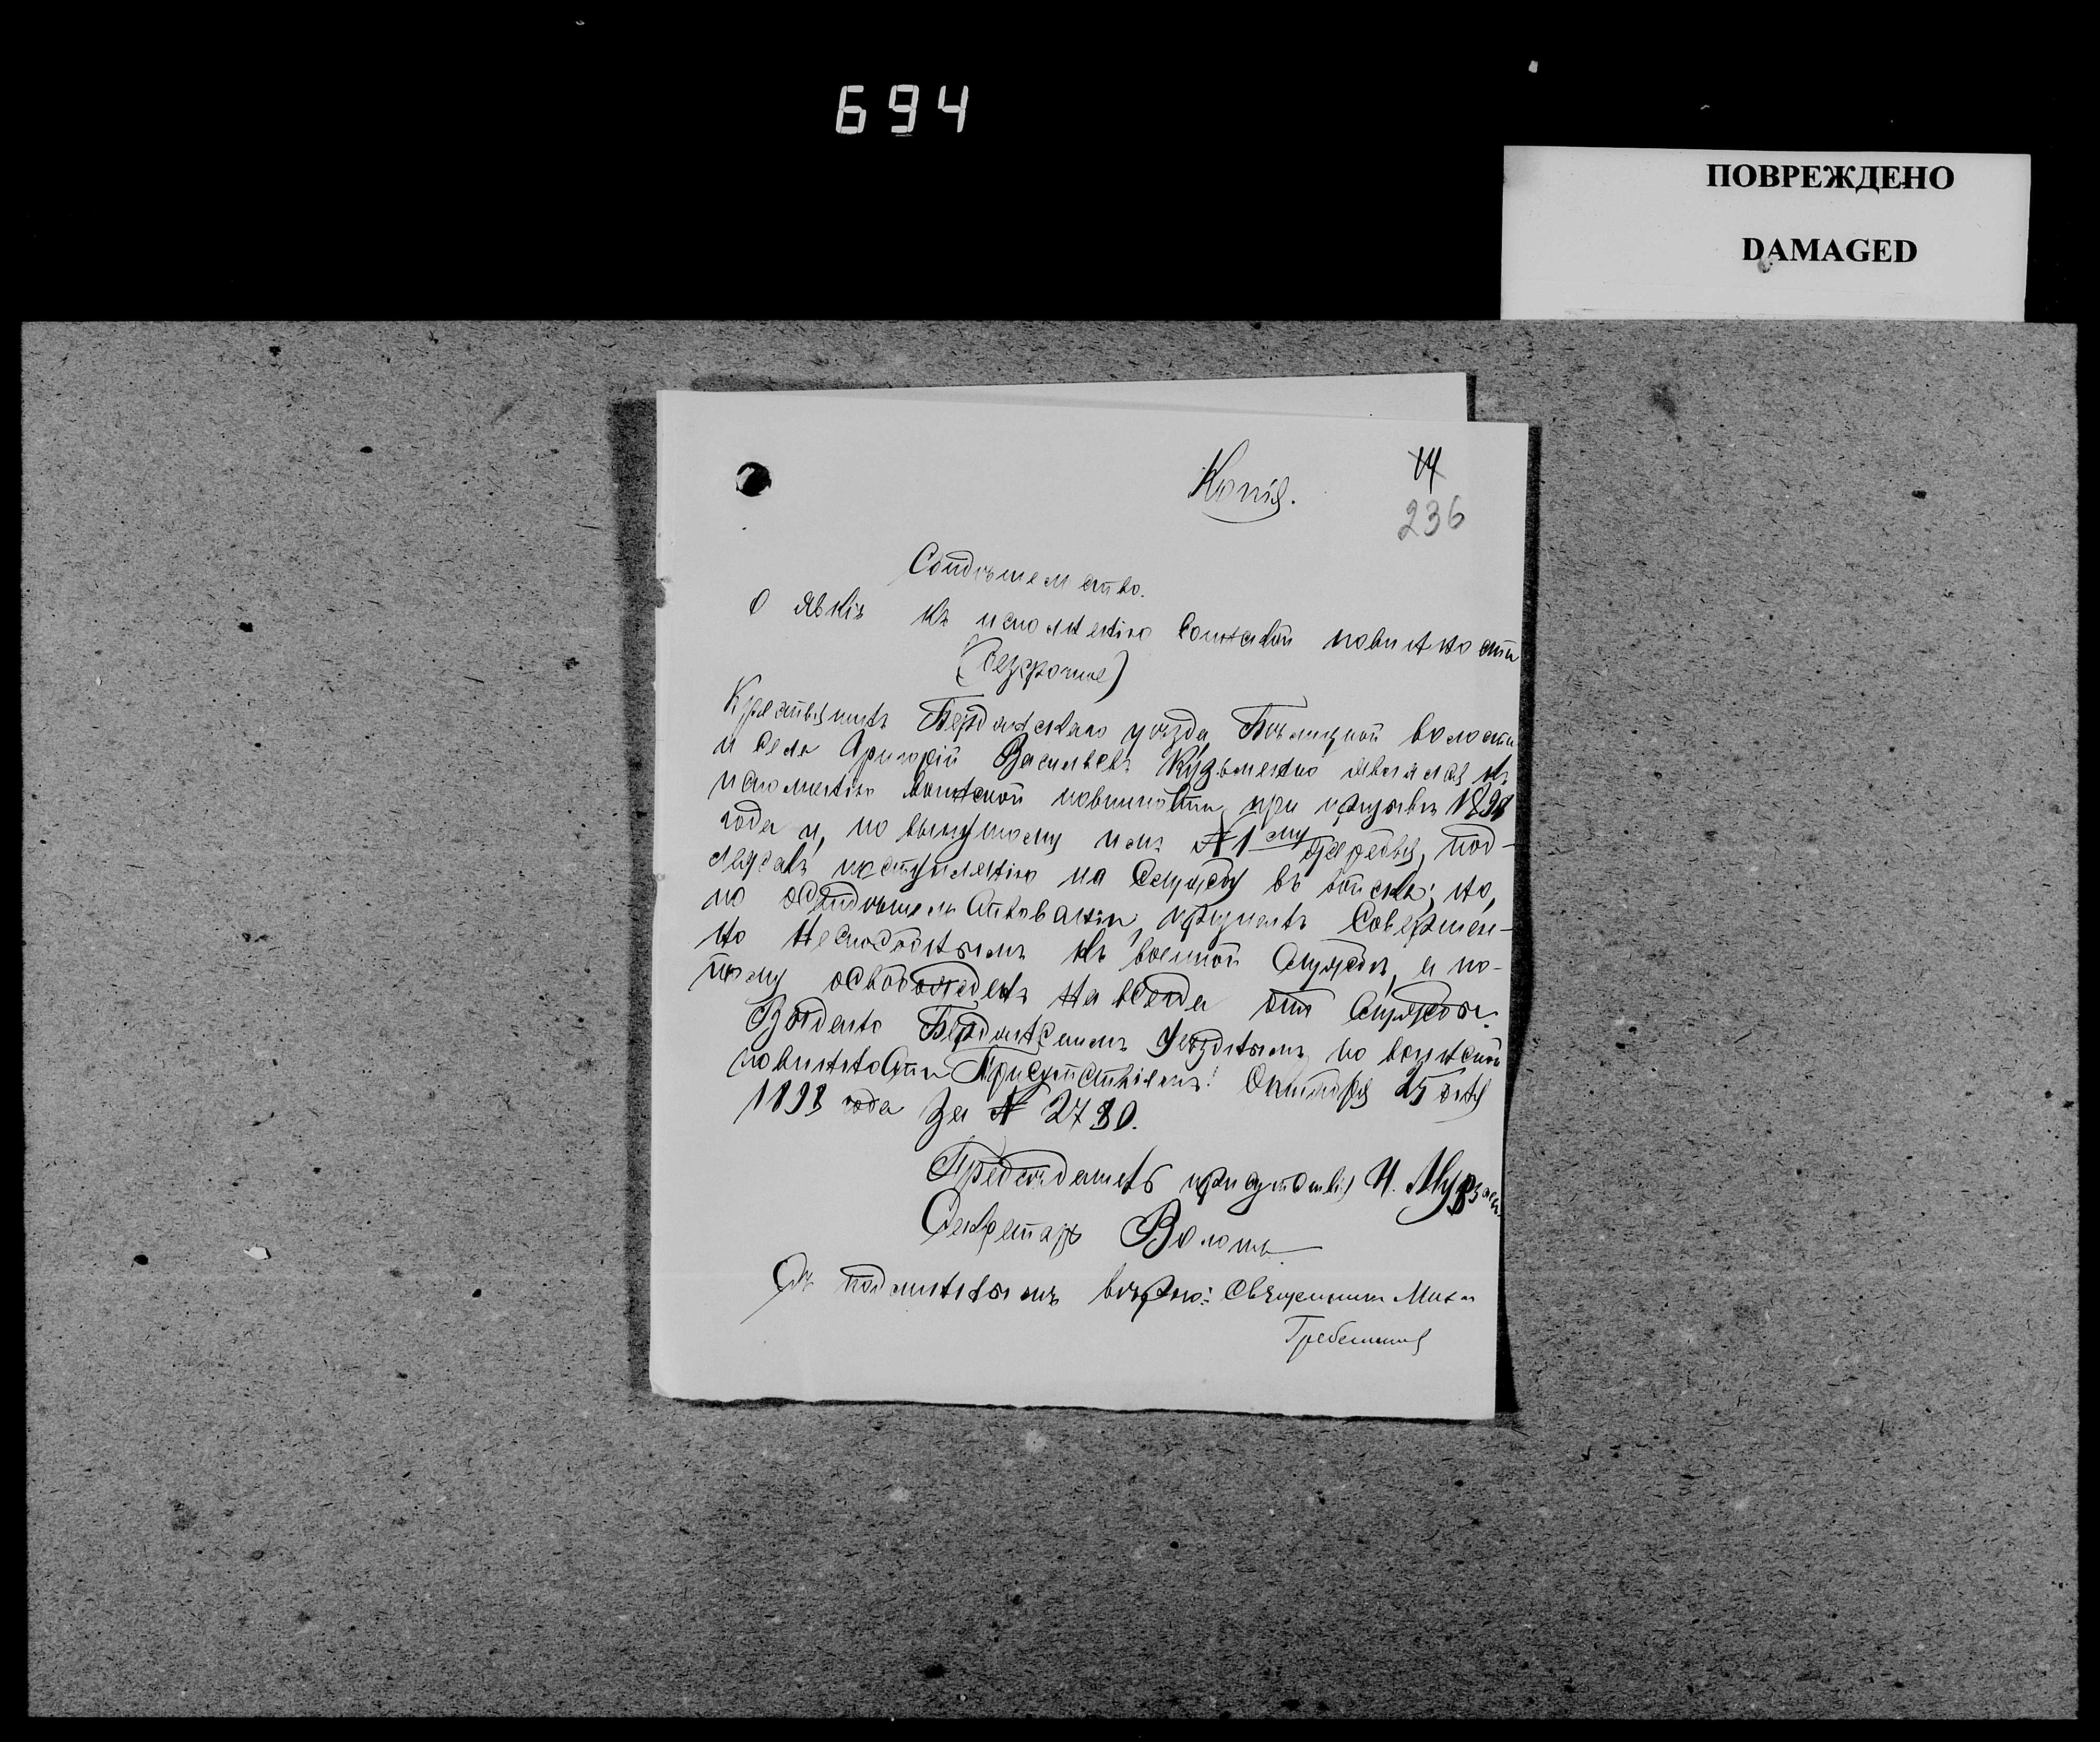 694
ПОВРЕЖДЕНО
DAMAGED
Копія.
14
236
Свидѣтельство.
О явкѣ къ исполненію воинской повинности
(безсрочное)
Крестьянинъ Бердянскаго уѣзда, волости
и села Григорій Васильевъ Кузьменко являлся къ
исполненію воинской повинности при призывѣ 1898
года и, по вынутому имъ № 1му жеребья, под-
лежалъ поступленію на службу въ войска; но,
по освидѣтельствованіи, признанъ совершен-
но неспособнымъ къ военной службѣ, а по-
тому освобожденъ навсегда отъ службы.
Выдано Бердянскимъ уѣзднымъ по воинской
повинности Присутствіемъ. Октября 25 дня
1898 года за № 2780.
Предсѣдатель присутствія И.
Секретарь
Съ подлиннымъ вѣрно: Священникъ